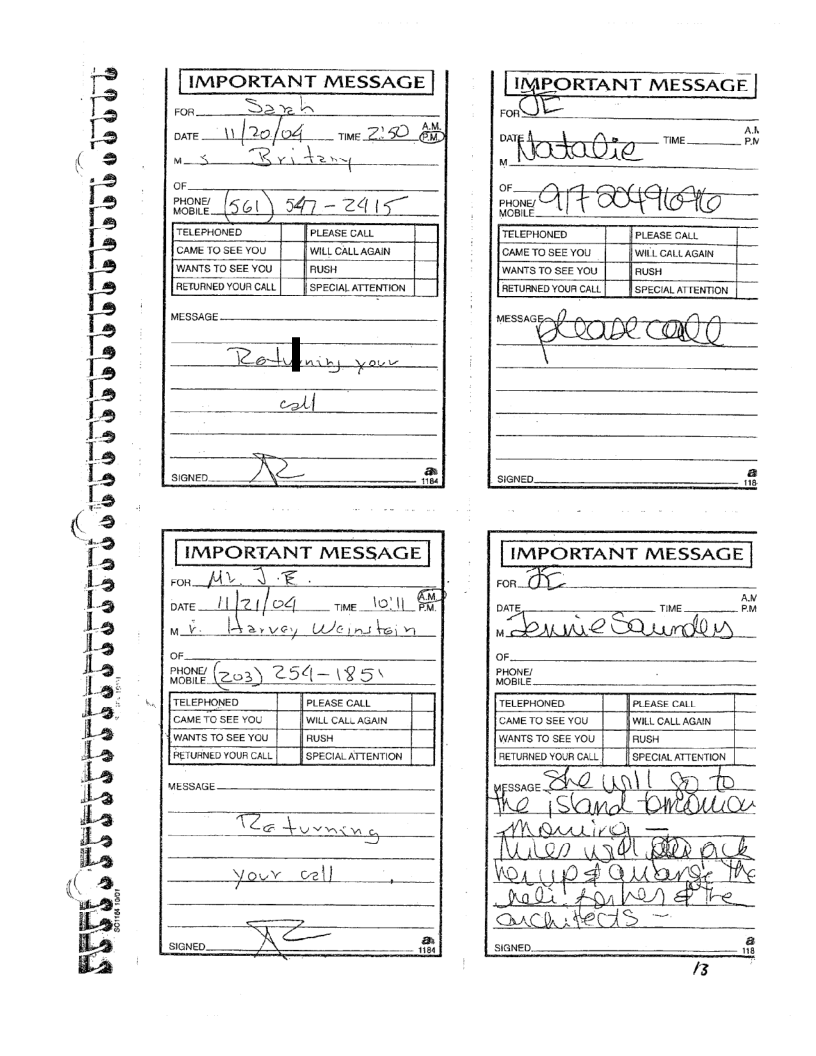 IMPORTANT MESSAGE
FOR Sarah
DATE 11/20/04 TIME 2:50 A.M. P.M.
M s Britany
OF
PHONE/ MOBILE (561) 547-2415
TELEPHONED PLEASE CALL
CAME TO SEE YOU WILL CALL AGAIN
WANTS TO SEE YOU RUSH
RETURNED YOUR CALL SPECIAL ATTENTION
MESSAGE
Returning your
call
SIGNED
1184
IMPORTANT MESSAGE
FOR JE
DATE TIME A.M P.M
M Natalie
OF
PHONE/ MOBILE 917 8049696
TELEPHONED PLEASE CALL
CAME TO SEE YOU WILL CALL AGAIN
WANTS TO SEE YOU RUSH
RETURNED YOUR CALL SPECIAL ATTENTION
MESSAGE please call
SIGNED
118
IMPORTANT MESSAGE
FOR Mr. J.E.
DATE 11/21/04 TIME 10:11 A.M. P.M.
M r. Harvey Weinstein
OF
PHONE/ MOBILE (203) 254-1851
TELEPHONED PLEASE CALL
CAME TO SEE YOU WILL CALL AGAIN
WANTS TO SEE YOU RUSH
RETURNED YOUR CALL SPECIAL ATTENTION
MESSAGE
Returning
your call
SIGNED
1184
SC1184 10/01
IMPORTANT MESSAGE
FOR JE
DATE TIME A.M P.M
M Jennie Saunders
OF
PHONE/ MOBILE
TELEPHONED PLEASE CALL
CAME TO SEE YOU WILL CALL AGAIN
WANTS TO SEE YOU RUSH
RETURNED YOUR CALL SPECIAL ATTENTION
MESSAGE She will go to
the island tomorrow
morning –
will
her up & arrange the
heli. for her & the
architects –
SIGNED
118
13